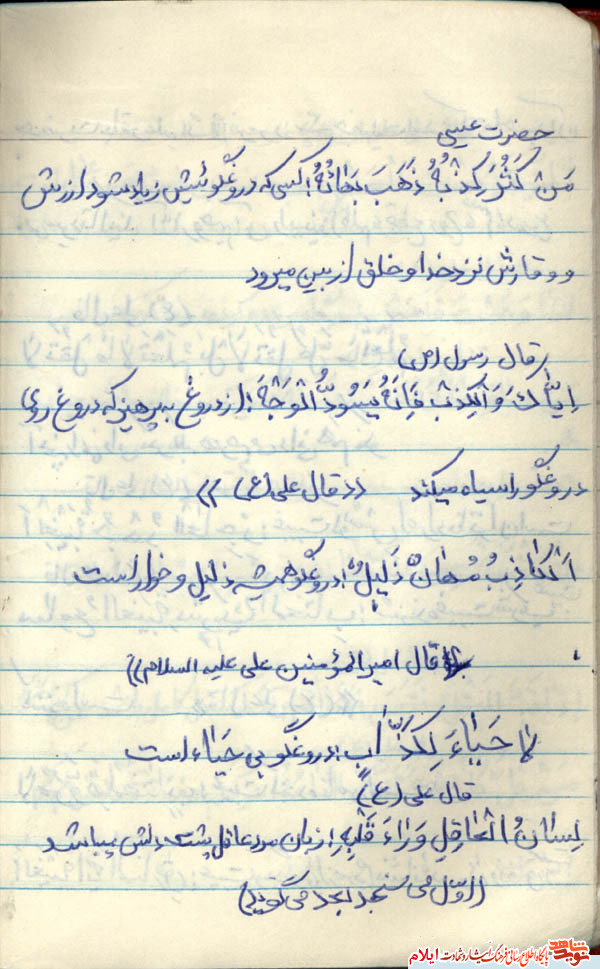 حضرت عیسی
مَنْ كَثُرَ كِذْبُهُ ذَهَبَ بَهَائُهُ: کسی که دروغگوئیش زیاد شود ارزش
و وقارش نزد خدا و خلق از بین میرود
قال رسول (ص)
اِیّٰاکَ وَ الکِذْبَ فَاِنَّهُ یُسَوِّدُ الْوَجْهَ: از دروغ به پرهیز که دروغ روی
دروغگو را سیاه میکند «قال علی (ع)»
اَلْکٰاذِبُ مُهٰانٌ ذَلِیلٌ: دروغگو همیشه ذلیل و خوار است
قال امیرالمؤمنین علی علیه السلام»
لا حَیٰاءَ لِکَذّٰابٍ: دروغگو بی حَیٰاء است
قال علی (ع)
لِسٰانُ الْعٰاقِلِ وَرٰاءَ قَلْبِهِ: زبان مرد عاقل پشت دلش میباشد
(اوّل می سنجد بعد می گوید)
نوید شاهد
پایگاه اطلاع رسانی فرهنگ ایثار و شهادت ایلام